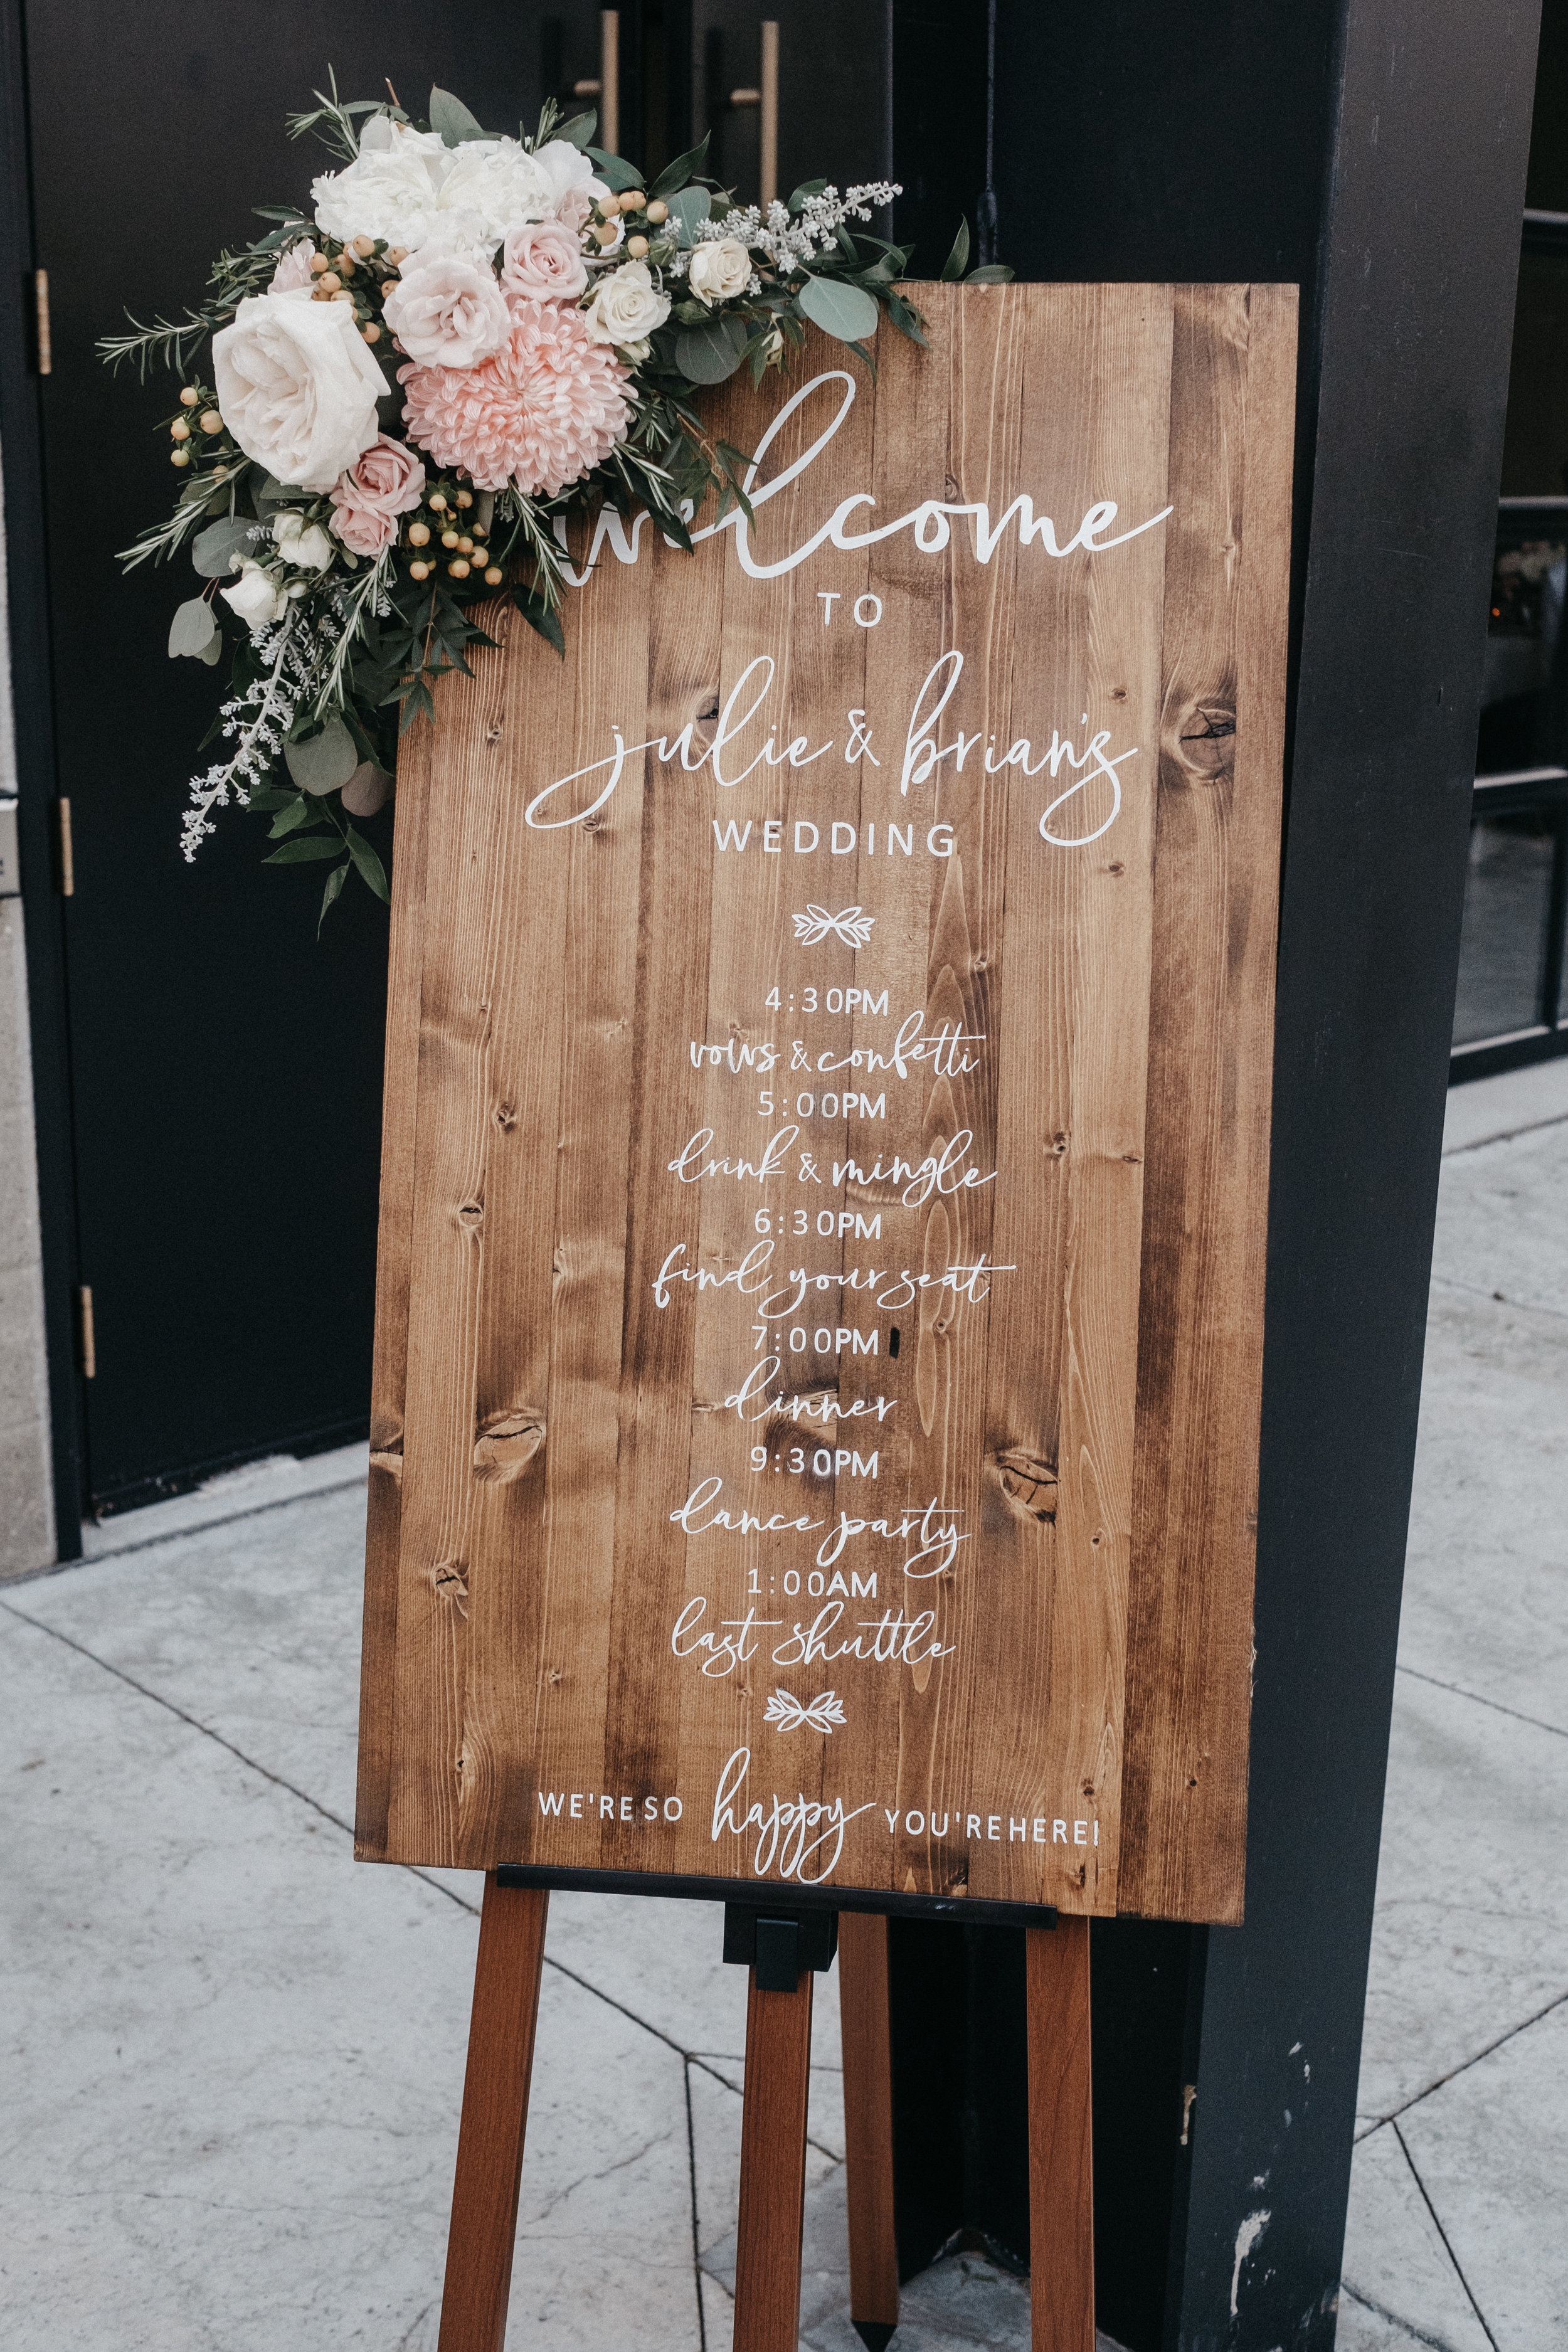 welcome
TO
julie & brian's
WEDDING
4:30PM
vows & confetti
5:00PM
drink & mingle
6:30PM
find your seat
7:00PM
dinner
9:30PM
dance party
1:00AM
last shuttle
WE'RE SO happy YOU'RE HERE!